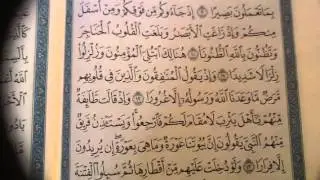 بِمَا تَعْمَلُونَ بَصِيرًا ۝ إِذْ جَاءُوكُم مِّن فَوْقِكُمْ وَمِنْ أَسْفَلَ
مِنكُمْ وَإِذْ زَاغَتِ الْأَبْصَارُ وَبَلَغَتِ الْقُلُوبُ الْحَنَاجِرَ
وَتَظُنُّونَ بِاللَّهِ الظُّنُونَا ۝ هُنَالِكَ ابْتُلِيَ الْمُؤْمِنُونَ وَزُلْزِلُوا
زِلْزَالًا شَدِيدًا ۝ وَإِذْ يَقُولُ الْمُنَافِقُونَ وَالَّذِينَ فِي قُلُوبِهِم
مَّرَضٌ مَّا وَعَدَنَا اللَّهُ وَرَسُولُهُ إِلَّا غُرُورًا ۝ وَإِذْ قَالَت طَّائِفَةٌ
مِّنْهُمْ يَا أَهْلَ يَثْرِبَ لَا مُقَامَ لَكُمْ فَارْجِعُوا وَيَسْتَأْذِنُ فَرِيقٌ
مِّنْهُمُ النَّبِيَّ يَقُولُونَ إِنَّ بُيُوتَنَا عَوْرَةٌ وَمَا هِيَ بِعَوْرَةٍ إِن يُرِيدُونَ
إِلَّا فِرَارًا ۝ وَلَوْ دُخِلَتْ عَلَيْهِم مِّنْ أَقْطَارِهَا ثُمَّ سُئِلُوا الْفِتْنَةَ